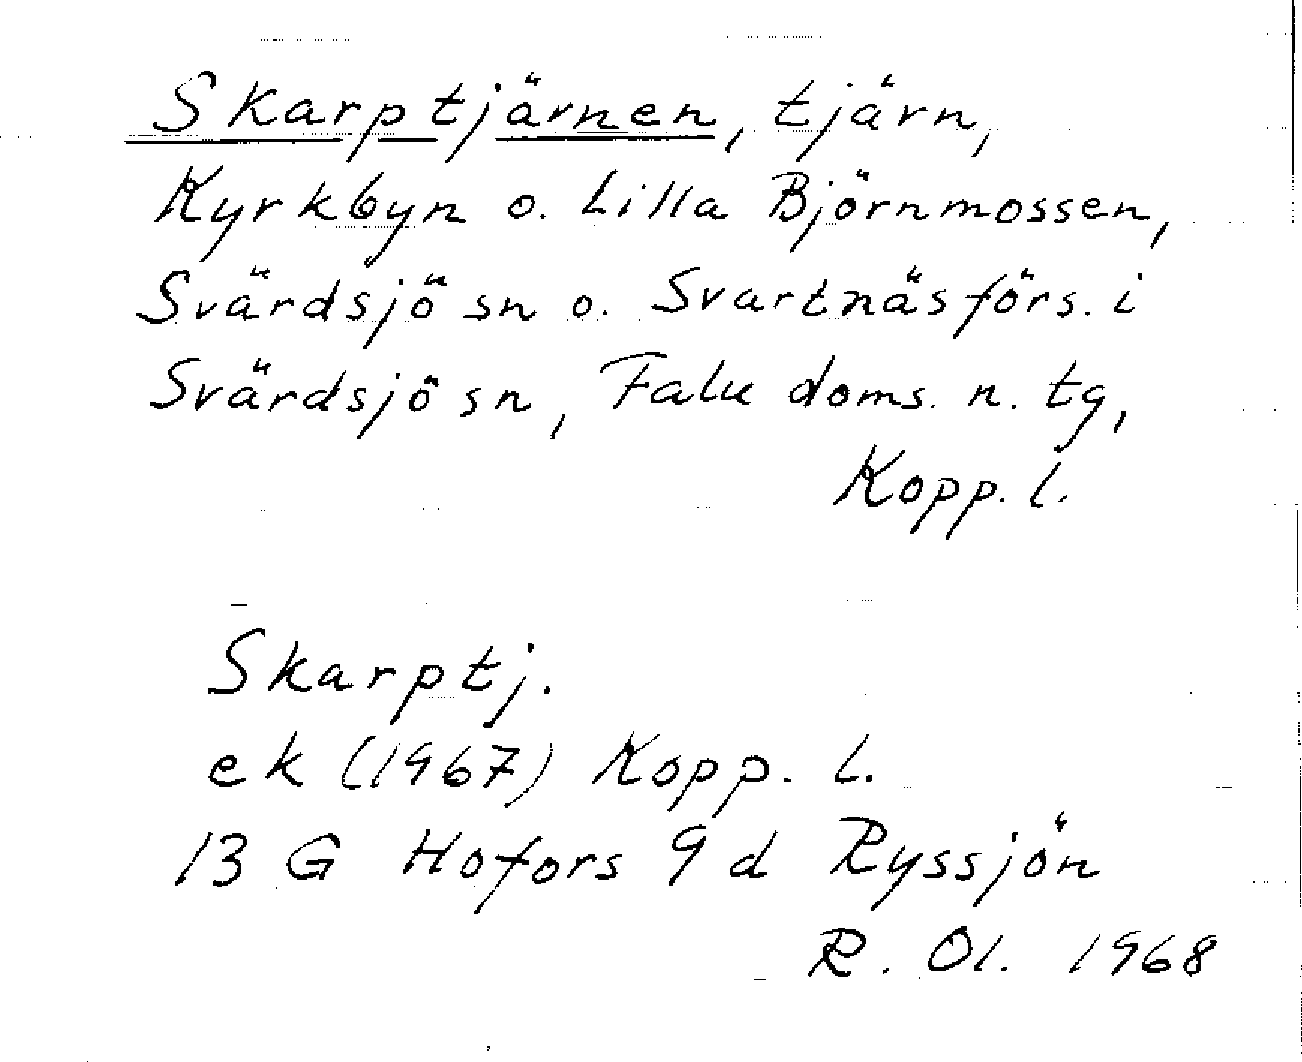 Skarptjärnen, tjärn,
Kyrkbyn o. Lilla Björnmossen,
Svärdsjö sn o. Svartnäs förs. i
Svärdsjö sn, Falu doms. n. tg,
Kopp. l.
Skarptj.
ek (1967) Kopp. l.
13 G Hofors 9 d Ryssjön
R. Ol. 1968